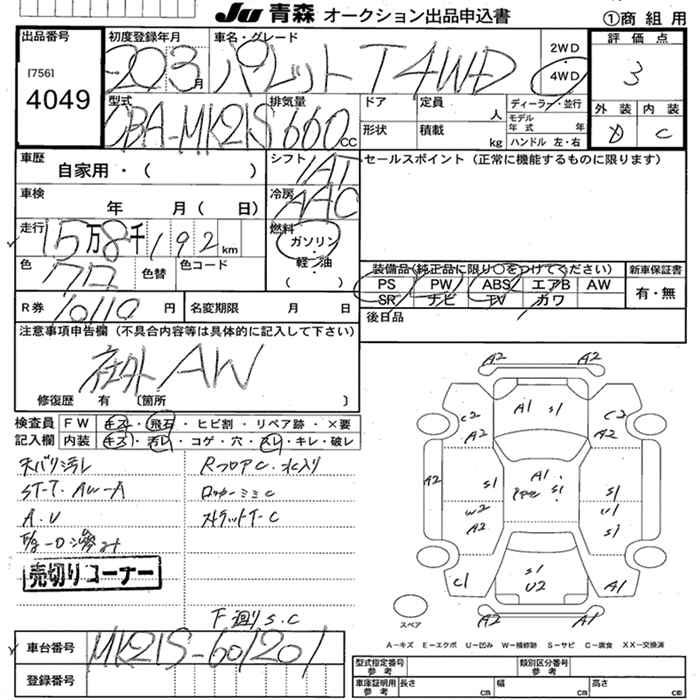 Ju 青森 オークション出品申込書 ①商組用
出品番号 初度登録年月 車名・グレード 2WD 評価点
[756] 20年3月 パレット T 4WD 4WD 3
4049 型式 排気量 ドア 定員 人 ディーラー・並行 外装 内装
CBA-MK21S 660 cc 形状 積載 kg モデル年式 年 D C
ハンドル 左・右
車歴 自家用・( ) シフト IAT セールスポイント (正常に機能するものに限ります)
車検 年 月( 日) 冷房 AAC
走行 15万8千192 km 燃料 ガソリン・軽油・( )
色 色替 色コード 装備品(純正品に限り○をつけてください) 新車保証書
クロ PS PW ABS エアB AW 有・無
SR ナビ TV カワ
R券 10110 円 名変期限 月 日 後日品
注意事項申告欄(不具合内容等は具体的に記入して下さい)
社外AW
修復歴 有 〔箇所 〕
検査員 FW キズ・飛石・ヒビ割・リペア跡・×要
記入欄 内装 キズ・汚レ・コゲ・穴・スレ・キレ・破レ
天バリ汚レ RフロアC・水入り
ST-T・AW-A ロッカーミミC
A.U ストラットT-C
売切りコーナー
F廻りS.C
車台番号 MK21S-601201
登録番号
A2 A2
C2 A1 S1 C2
A2 A2
A2 A1 S1
S2 S1 S1
W2 U1
A2 S1
C1 S1 A1
U2
A2 A1
スペア
A-キズ E-エクボ U-凹み W-補修跡 S-サビ C-腐食 XX-交換済
型式指定番号 参考 類別区分番号 参考
車庫証明用 参考 長さ cm 幅 cm 高さ cm